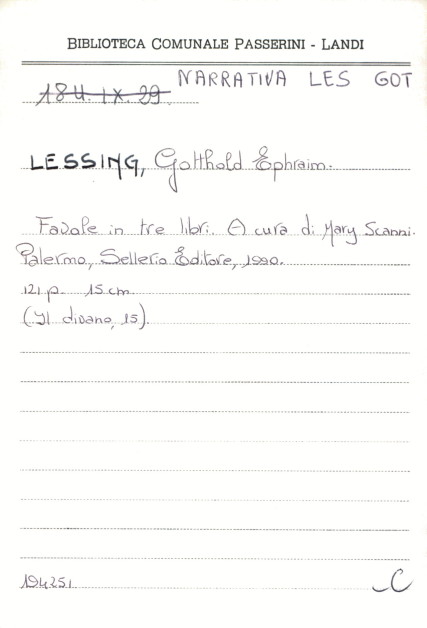 BIBLIOTECA COMUNALE PASSERINI - LANDI
NARRATIVA LES GOT
18U. IX. 29
LESSING, Gotthold Ephraim.
Favole in tre libri. A cura di Mary Scanni.
Palermo, Sellerio Editore, 1990.
121 p. 15 cm.
(Il divano, 15).
194251
C